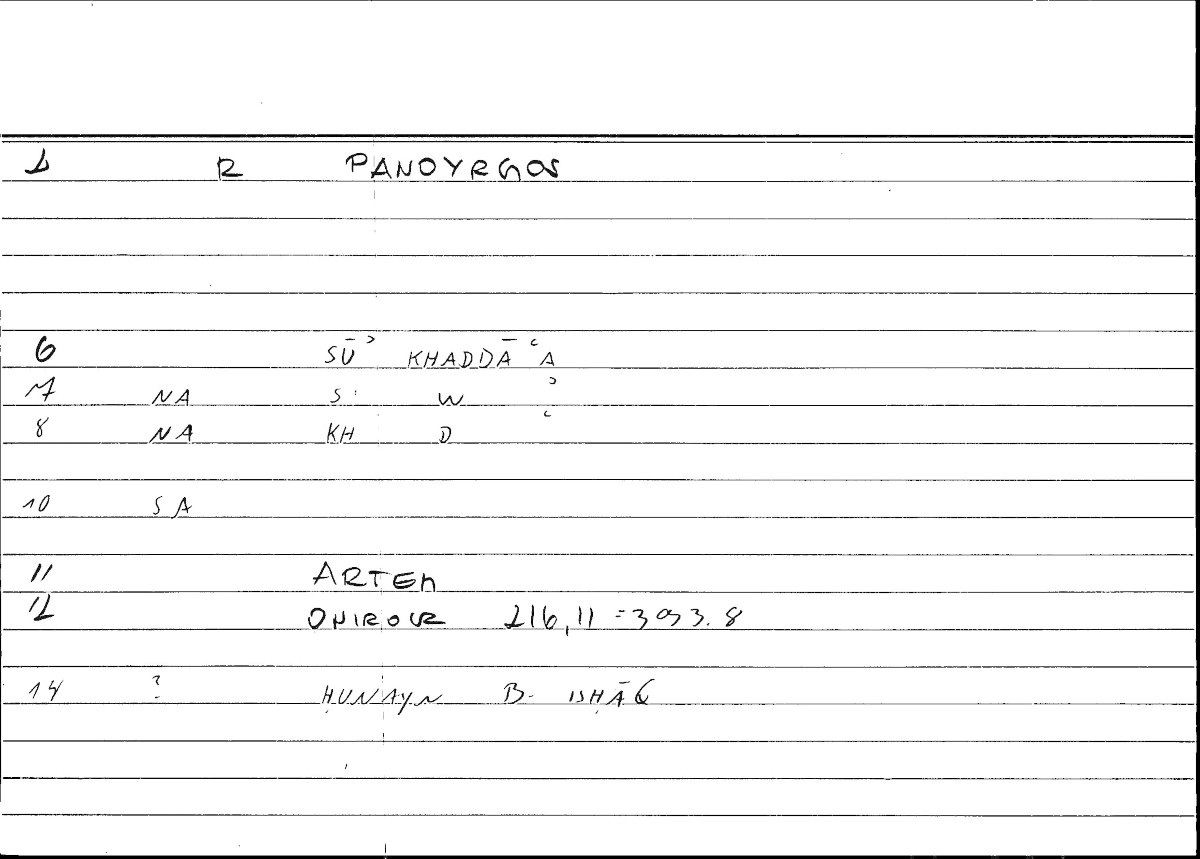 2 R PANOYRGOS
6 SŪʾ KHADDĀʿA
7 NA S W ʾ
8 NA KH D ʿ
10 SA
11 ARTEM
12 ONIROCR 216,11 = 393.8
14 ? ḤUNAYN B. ISḤĀQ